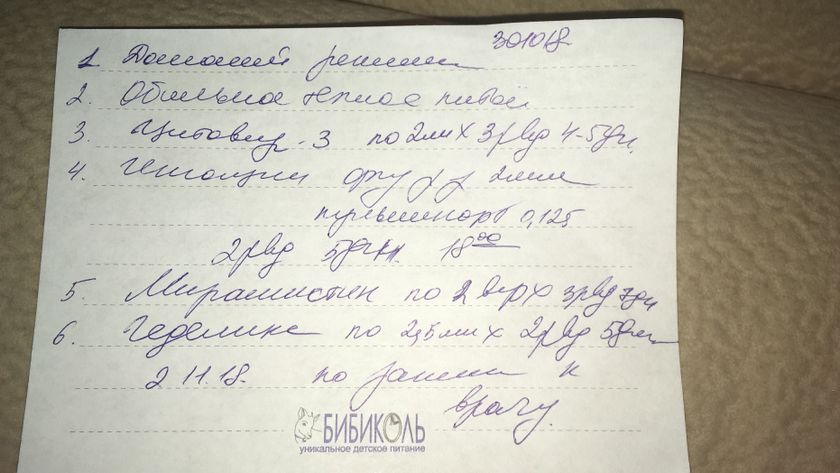 301018
1. Домашний режим
2. Обильное теплое питьё
3. Цитовир-3 по 2мл х 3 рвд 4-5дн.
4. Ингаляции физ р-р 2мл
пульмикорт 0,125
2рвд 5дн. 18⁰⁰
5. Мирамистин по 2 х 3рвд 7дн
6. Геделикс по 2,5мл х 2рвд 5дн
2.11.18. по записи к
врачу.
БИБИКОЛЬ
уникальное детское питание